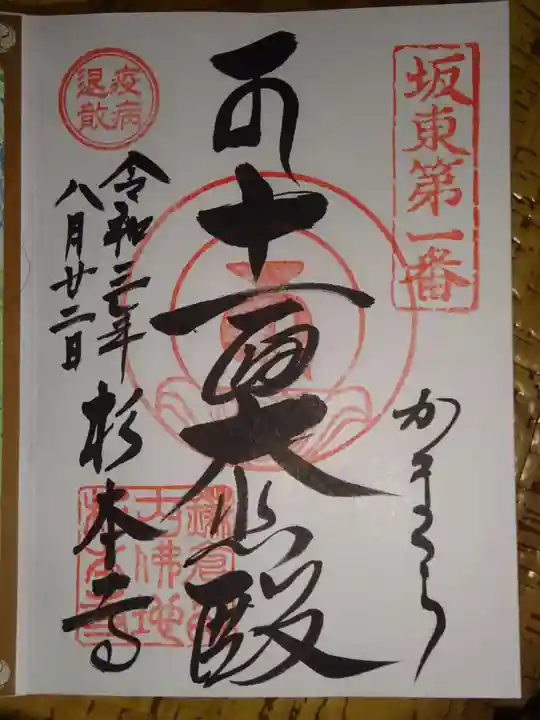 坂東第一番
かまくら
十一面大悲殿
疫病
退散
令和三年
八月廿二日
杉本寺